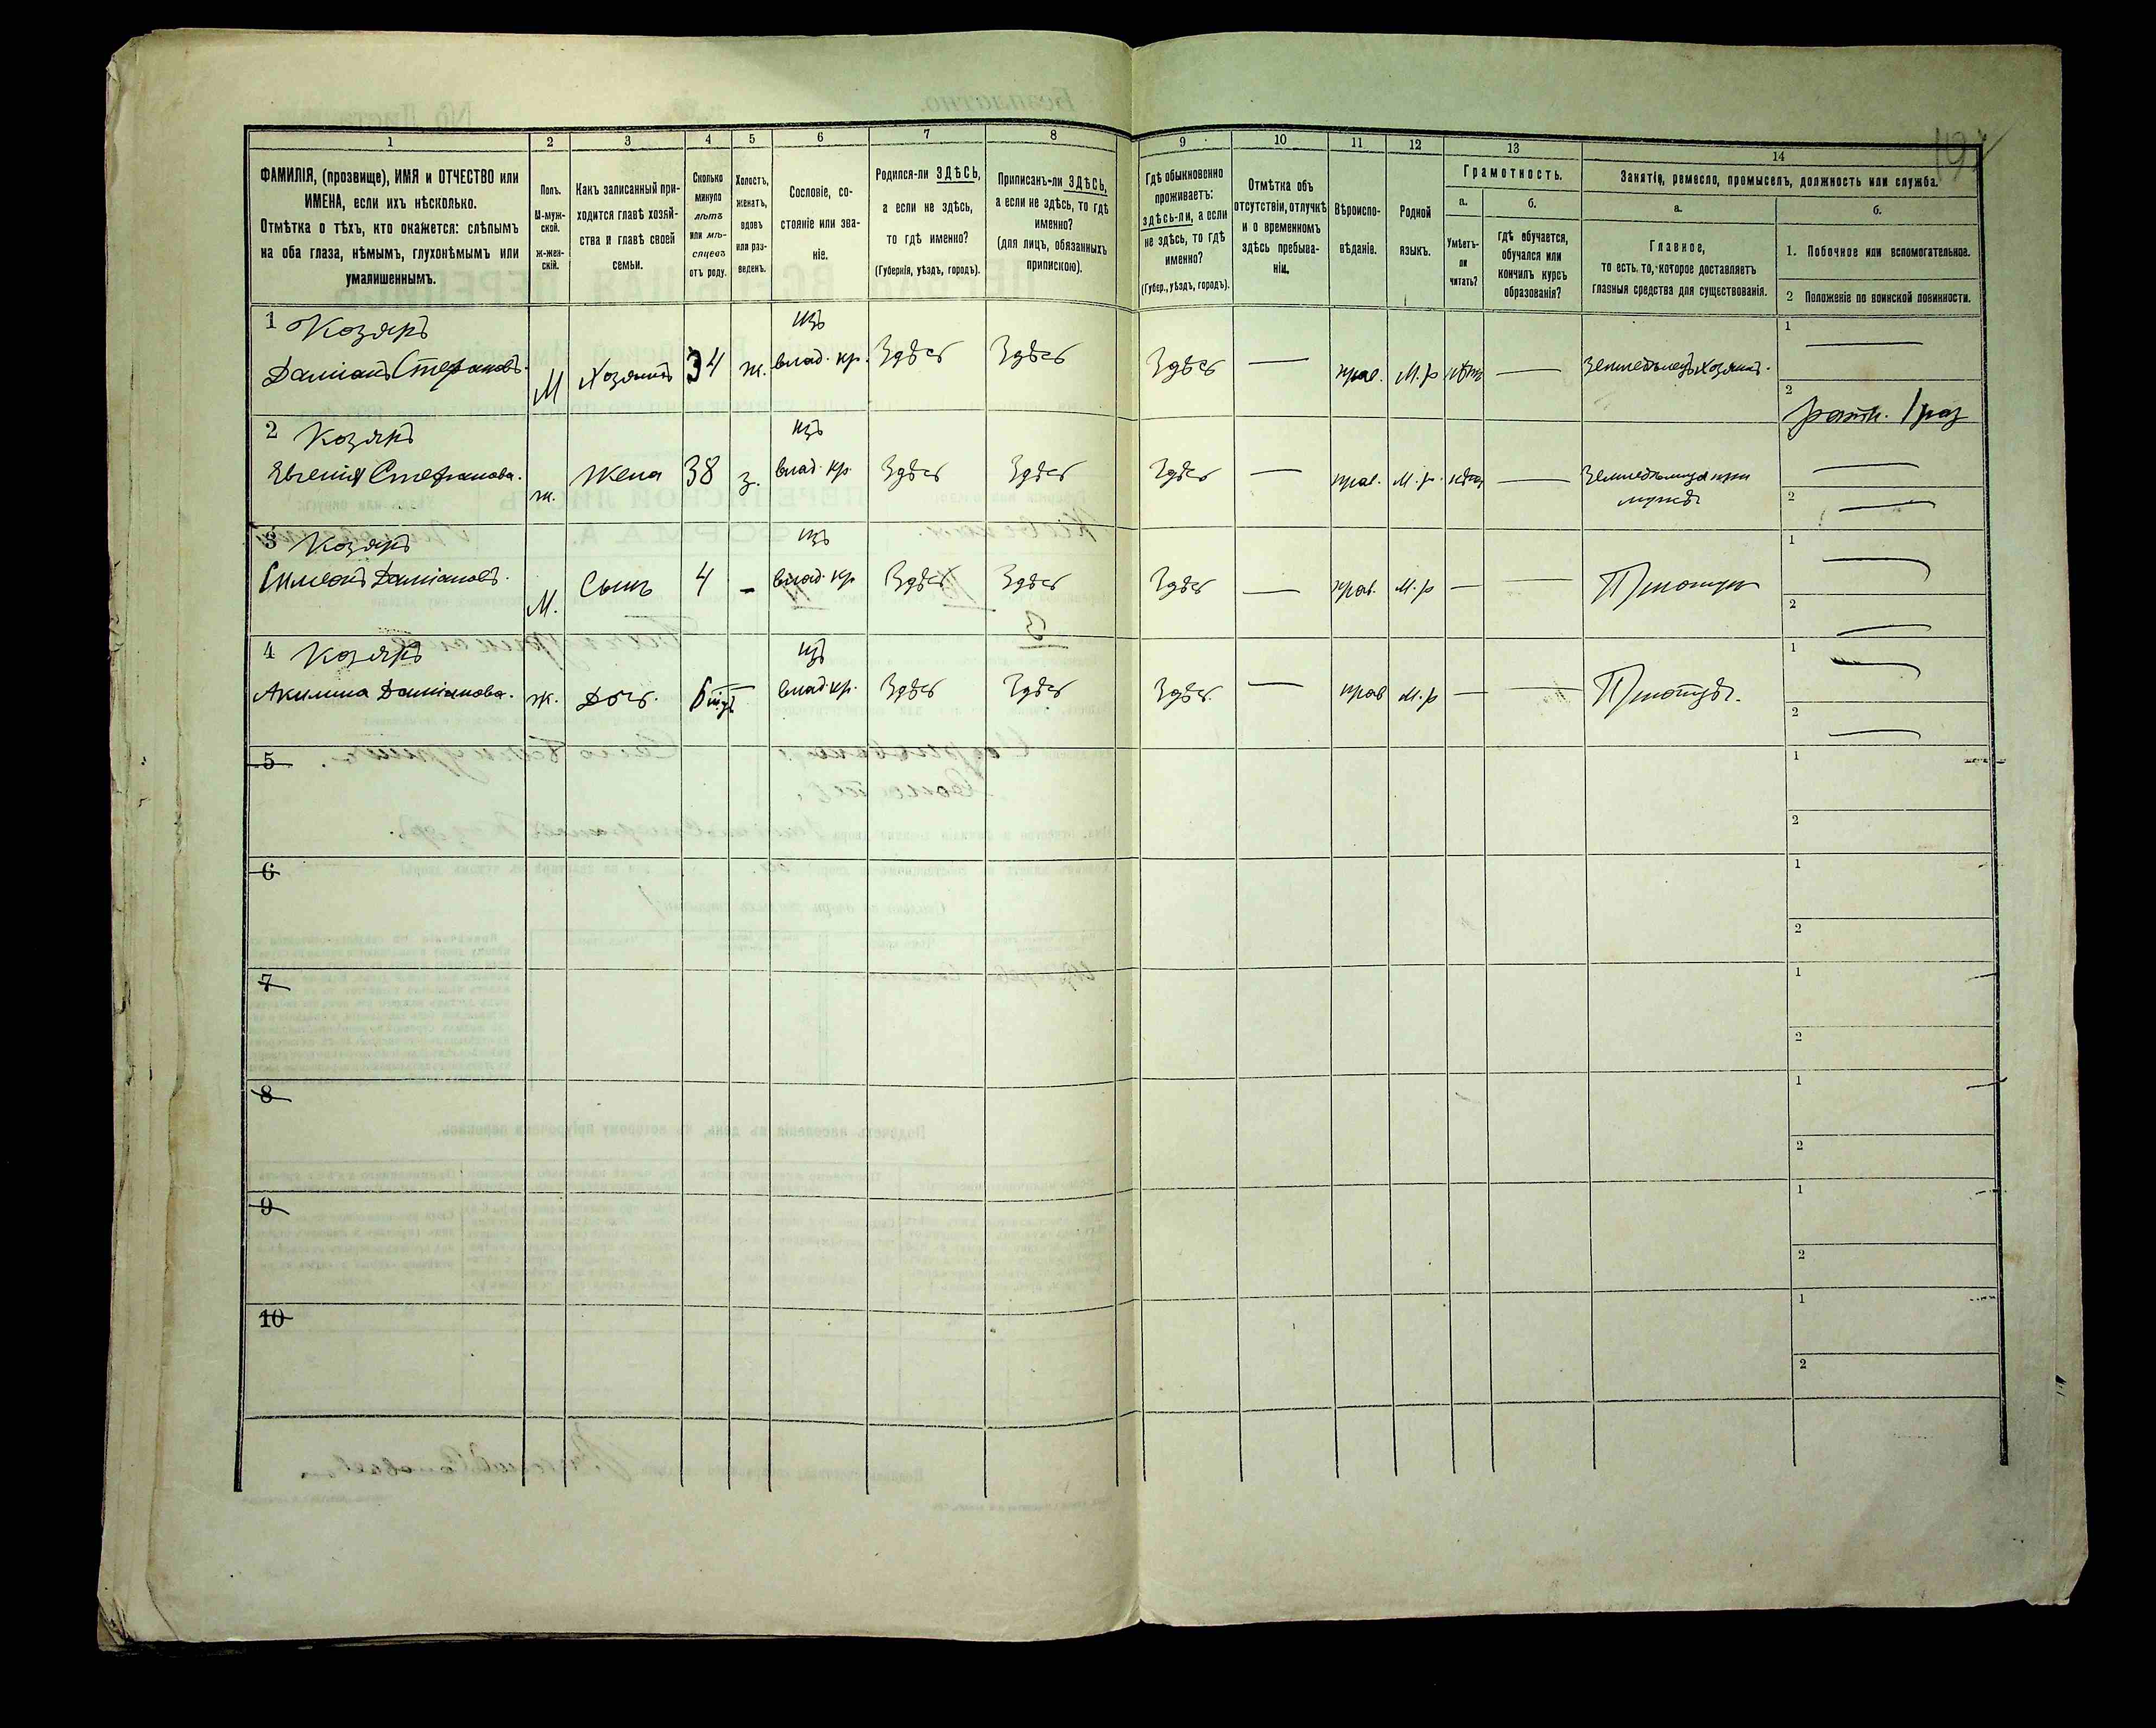 1 2 3 4 5 6 7 8 9 10 11 12 13 14
ФАМИЛІЯ, (прозвище), ИМЯ и ОТЧЕСТВО или
ИМЕНА, если ихъ нѣсколько.
Отмѣтка о тѣхъ, кто окажется: слѣпымъ
на оба глаза, нѣмымъ, глухонѣмымъ или
умалишеннымъ.
Полъ.
М-муж-
ской.
ж-жен-
скій.
Какъ записанный при-
ходится главѣ хозяй-
ства и главѣ своей
семьи.
Сколько
минуло
лѣтъ
или мѣ-
сяцевъ
отъ роду.
Холостъ,
женатъ,
вдовъ
или раз-
веденъ.
Сословіе, со-
стояніе или зва-
ніе.
Родился-ли ЗДѢСЬ,
а если не здѣсь,
то гдѣ именно?
(Губернія, уѣздъ, городъ).
Приписанъ-ли ЗДѢСЬ,
а если не здѣсь, то гдѣ
именно?
(для лицъ, обязанныхъ
припискою).
Гдѣ обыкновенно
проживаетъ:
здѣсь-ли, а если
не здѣсь, то гдѣ
именно?
(Губер., уѣздъ, городъ).
Отмѣтка объ
отсутствіи, отлучкѣ
и о временномъ
здѣсь пребыва-
ніи.
Вѣроиспо-
вѣданіе.
Родной
языкъ.
Грамотность.
а.
Умѣетъ-
ли
читать?
б.
гдѣ обучается,
обучался или
кончилъ курсъ
образованія?
Занятіе, ремесло, промыселъ, должность или служба.
а.
Главное,
то есть то, которое доставляетъ
главныя средства для существованія.
б.
1. Побочное или вспомогательное.
2 Положеніе по воинской повинности.
1 Козяръ
Даміанъ Стефановъ. М Хозяинъ 34 ж. изъ влад. кр. Здѣсь Здѣсь Здѣсь — прав. М. р нѣтъ — Земледѣлецъ хозяинъ. 1 —
2 ратн. 1 раз
2 Козяръ
Евгенія Стефанова. ж. Жена 38 з. изъ влад. кр. Здѣсь Здѣсь Здѣсь — прав. М. р. нѣтъ — Земледѣлица при —
мужѣ 2 —
3 Козяръ
Симеонъ Даміановъ. М. Сынъ 4 - изъ влад. кр Здѣсь Здѣсь Здѣсь — прав. М. р — — При отцѣ 1 —
2 —
4 Козяръ
Акилина Даміанова. ж. Дочь. изъ влад. кр. Здѣсь Здѣсь Здѣсь. — прав М. р — — При отцѣ. 1 —
2 —
5 1
2
6 1
2
7 1
2
8 1
2
9 1
2
10 1
2